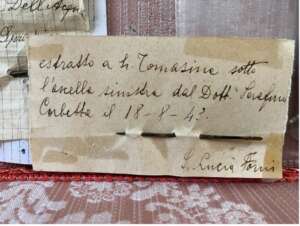 Dell'Acqu
estratto a S. Tomasina sotto
l'ascella sinistra dal Dott. Serafino
Corbetta il 18-8-43.
S. Lucia Forni